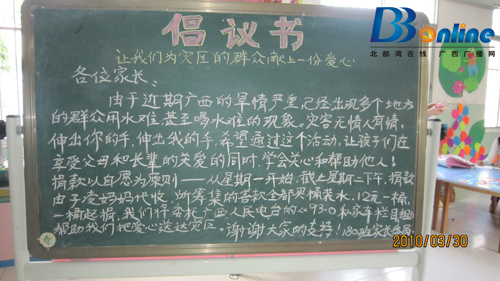 BBonline
北部湾在线 广西广播网
倡议书
让我们为灾区的群众献上一份爱心
各位家长：
由于近期广西的旱情严重已经出现多个地方
的群众用水难甚至喝水难的现象。灾害无情人有情，
伸出你的手，伸出我的手，希望通过这个活动，让孩子们在
享受父母和长辈的关爱的同时，学会关心和帮助他人！
捐款以自愿为原则——从星期一开始，截止星期二下午，捐款
由子凌妈妈代收，所筹集的善款全部买桶装水，12元一桶，
一桶起捐，我们将委托广西人民电台的心930私家车栏目组
帮助我们把爱心送达灾区。谢谢大家的支持！180班家长
2010/03/30